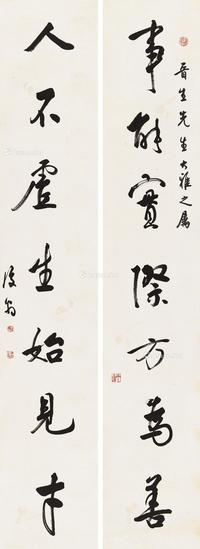 晉生先生大雅之屬
事能實際方為善
人不虛生始見才